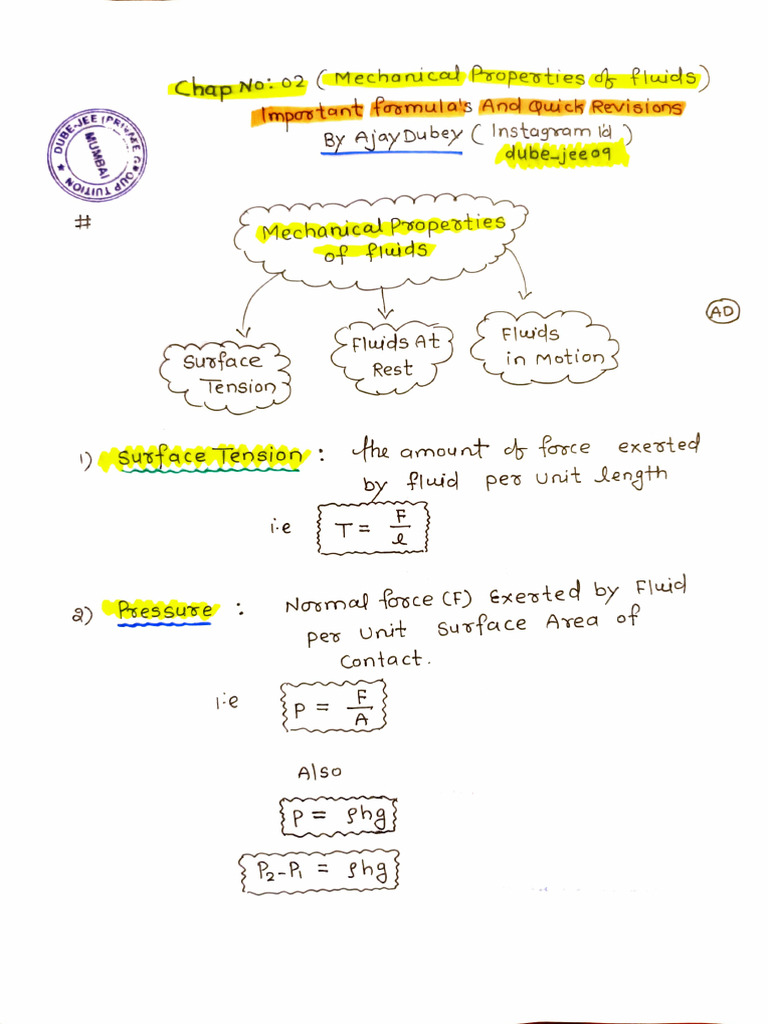 Chap No: 02 ( Mechanical Properties of fluids)
Important formula's And Quick Revisions
By Ajay Dubey ( Instagram I'd )
dube_jee09
DUBE-JEE (PRIVATE GROUP TUITION)
MUMBAI
#
Mechanical Properties
of fluids
AD
Surface
Tension
Fluids At
Rest
Fluids
in Motion
1) Surface Tension : the amount of force exerted
by fluid per unit length
i.e T = F/l
2) Pressure : Normal force (F) Exerted by Fluid
per Unit Surface Area of
Contact.
i.e P = F/A
Also
P = ρhg
P₂-P₁ = ρhg